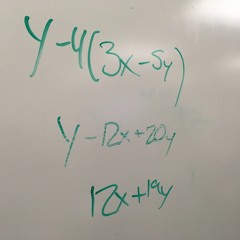 y-4(3x-5y)
y-12x+20y
12x+19y